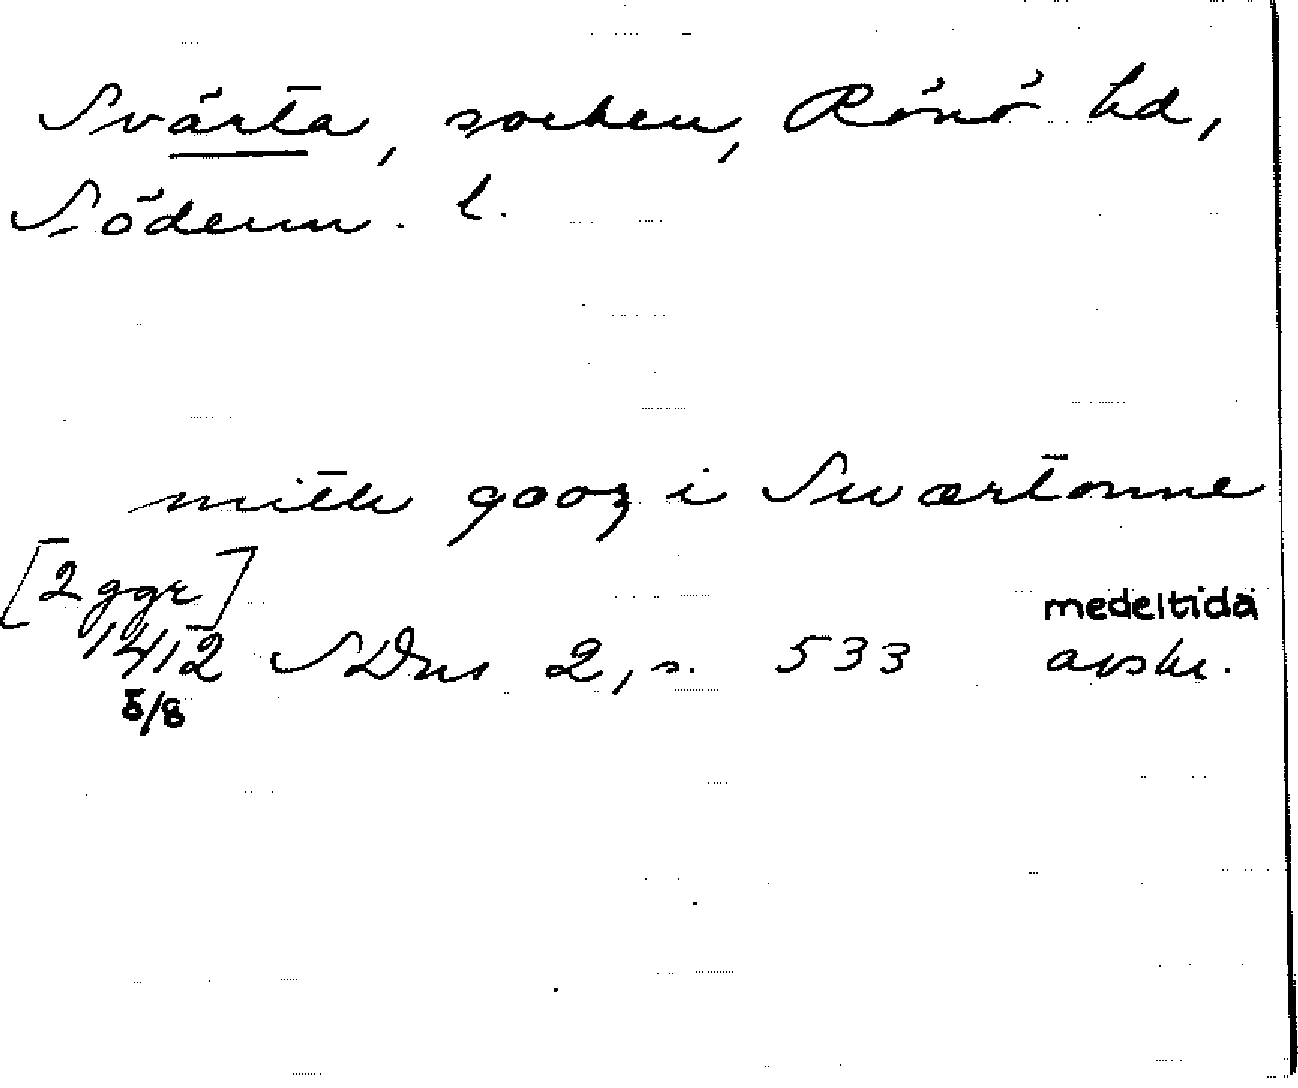 Svärta, socken, Rönö hd,
Söderm. l.
mitth gooz i Swærtonne
[2 ggr]
medeltida
1412 SDns 2, s. 533 avskr.
5/8